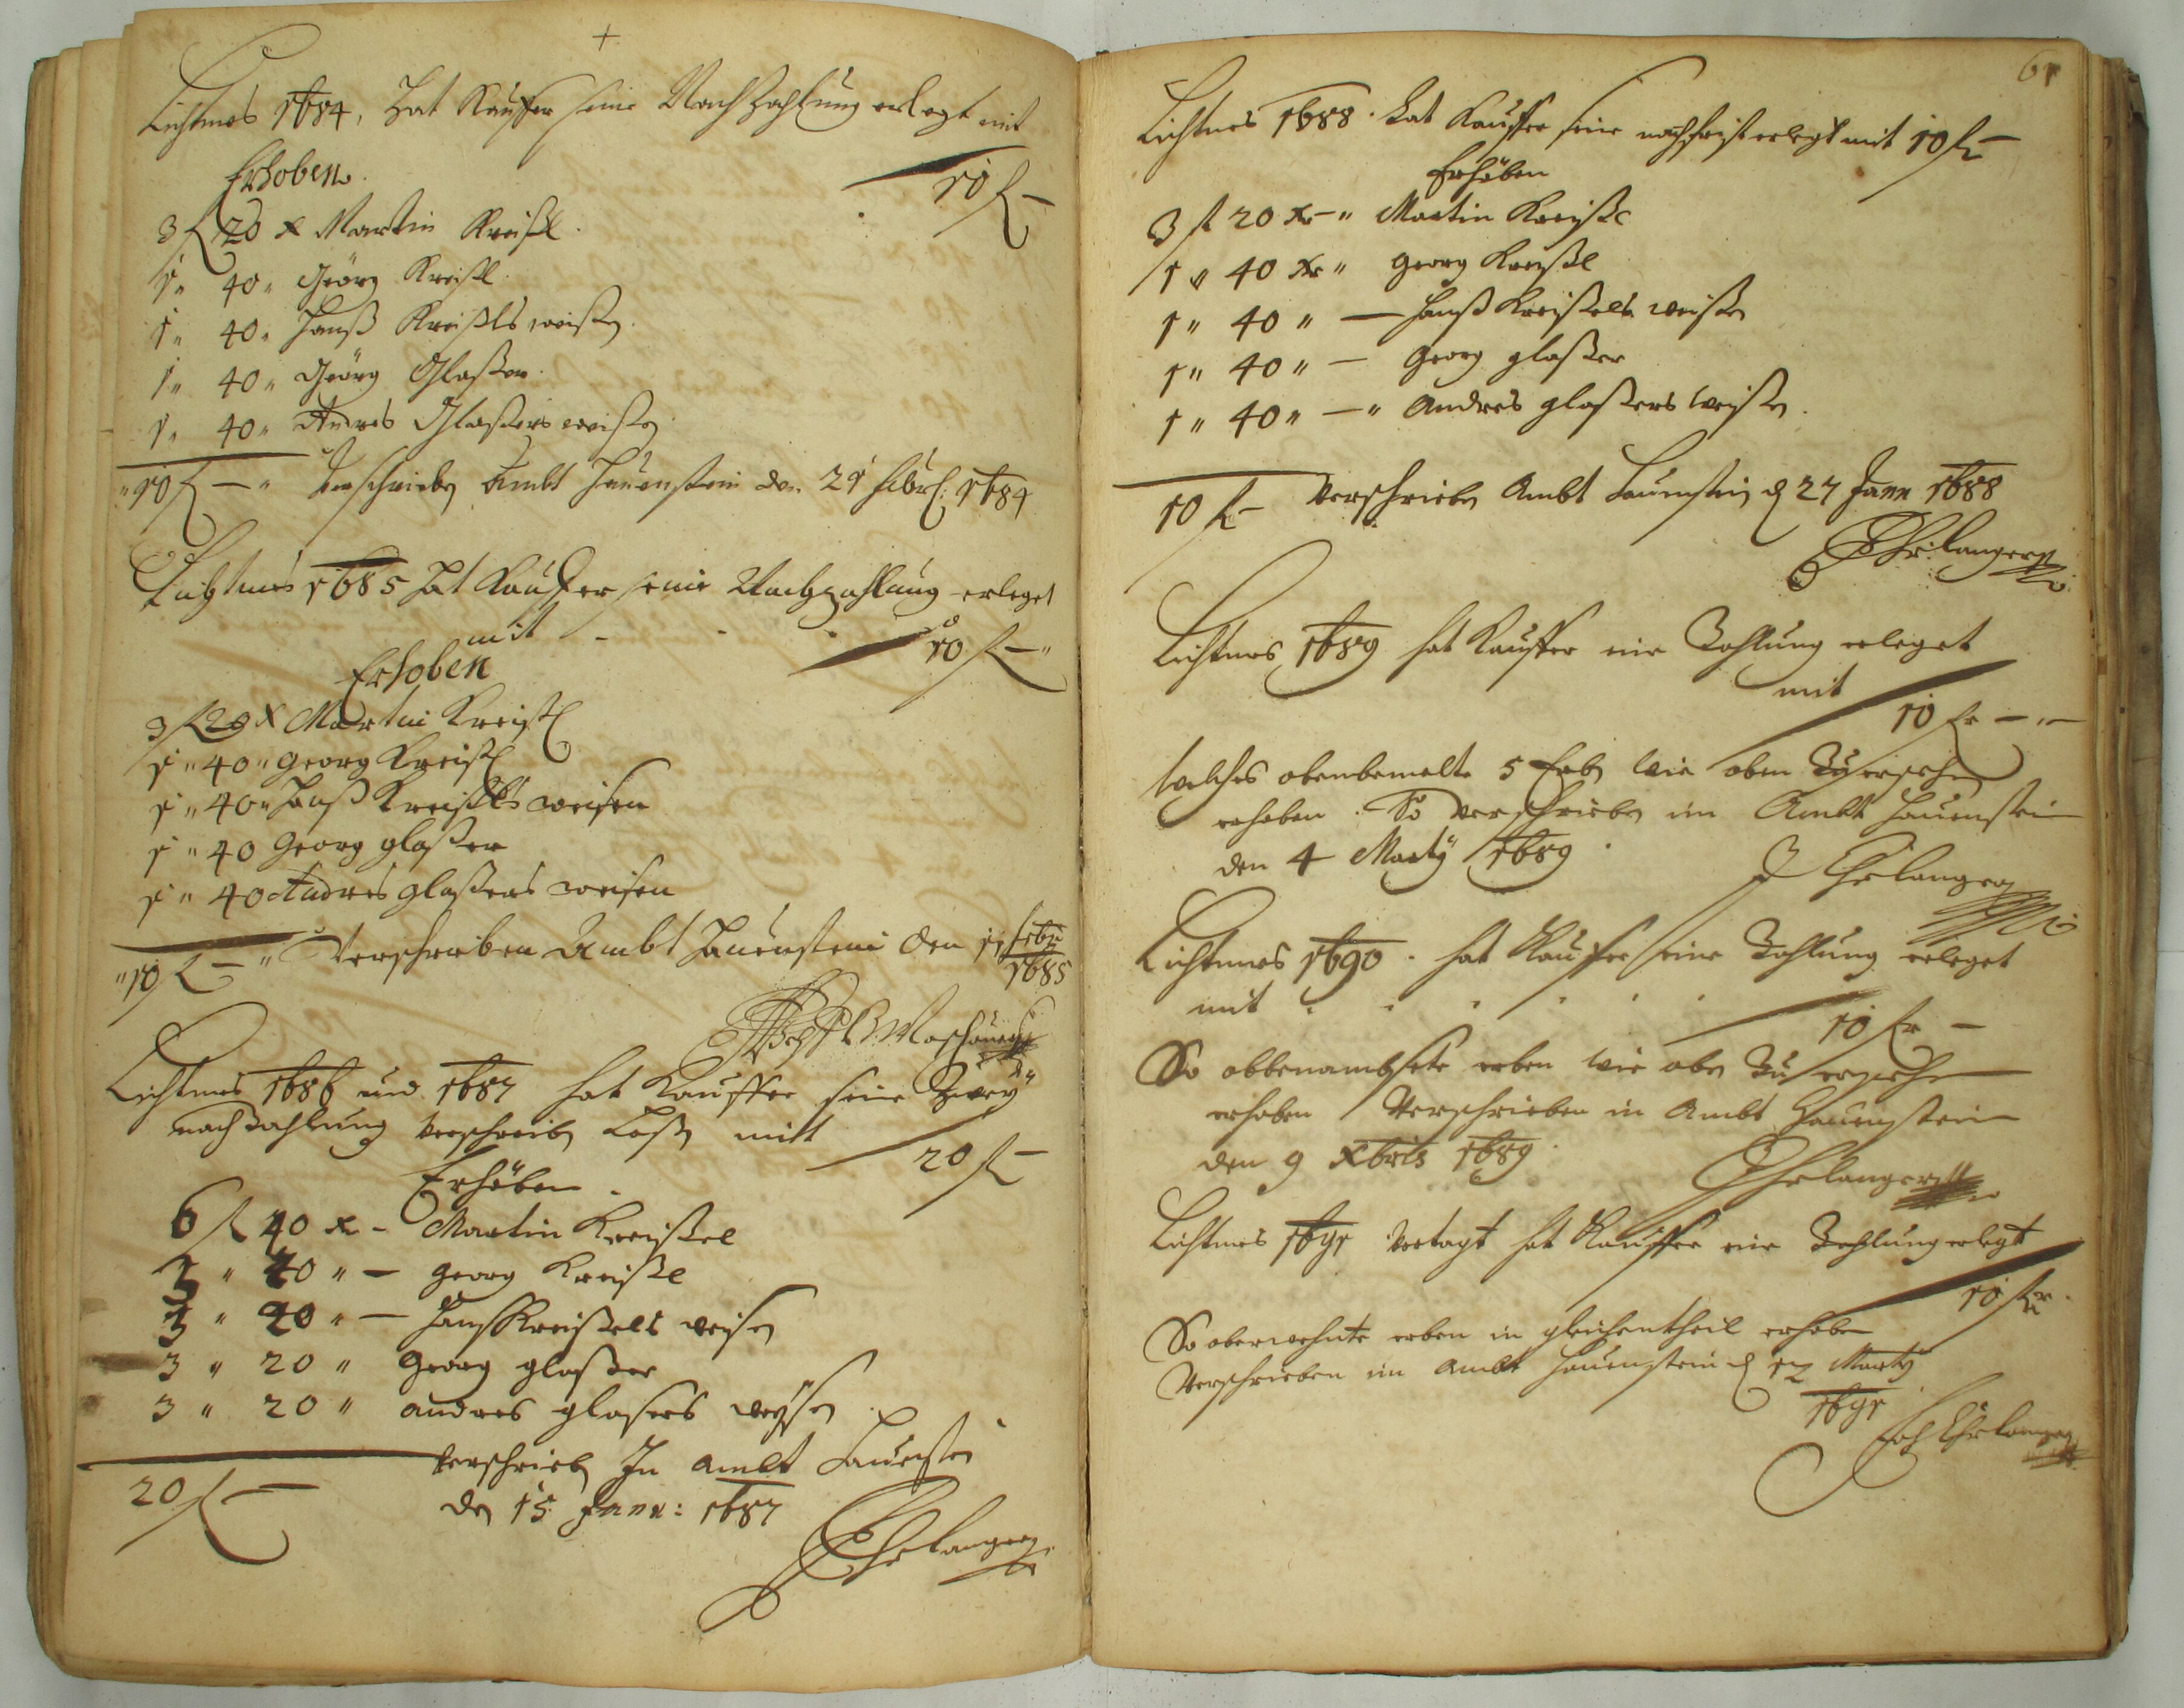 +
Lichtmes 1684, Hat Kauffer seine Nachzahlung erlegt mit
10 f –
Erhoben.
3 f 20 x Martin Kreißl.
1 " 40 " Geörg Kreißl.
1 " 40 " Hanß Kreißls weißen.
1 " 40 " Geörg Glaßer.
1 " 40 " Andres Glaßers weißen
" 10 f – " Verschrieben Ambt Hauenstein den 21 1684
Lichtmes 1685 Hat Kauffer seine Nachzahlung erleget
mit - - - 10 f – "
Erhoben
3 f 20 x Martin Kreißl
1 " 40 " Georg Kreißl
1 " 40 " Hanß Kreißls weisen
1 " 40 Georg glaßer
1 " 40 Andres glaßers weisen
" 10 f – " Verschrieben Ambt Hauenstein den febr
1685
Lichtmes 1686 und 1687 hat Kauffer seine Zwey
nachzahlung verschrieben laßen mitt
20 f –
Erhoben.
6 f 40 x – Martin Kreißel
3 " 20 " – Georg Kreißl
3 " 20 " – Hanß Kreißels weisen
3 " 20 " Georg glaßer
3 " 20 " andres glasers weysen
20 f – verschrieben In Ambt Hauenstein
den 15 Janr: 1687
61
Lichtmes 1688. hat Kauffer seine nachfrist erlegt mit 10 f –
Erhoben
3 f 20 xr – " Martin Kreißl
1 " 40 xr " Georg Kreißl
1 " 40 " – Hanß Kreißels weißen
1 " 40 " – Georg glaßer
1 " 40 " – " Andres glaßers weißen.
10 f – Verschrieben Ambt Hauenstein d 27 Janr 1688
Lichtmes 1689 hat Kauffer eine Zahlung erleget
mit
10 fr – " –
welches obenbemelte 5 Erben wie oben Zu ersehen
erhoben. So verschrieben im Ambt Hauenstein
den 4 Marty 1689.
Lichtmes 1690. hat Kauffer seine Zahlung erleget
mit . . . . . .
10 fr –
So obbenambsete erben wie oben Zu ersehen
erhoben Verschrieben in Ambt Hauenstein
den 9 Xbris 1689.
Lichtmes 1691 vertagt hat Kauffer eine Zahlung erlegt
10 fr.
So oberwehnte erben in gleichentheil erhoben
Verschrieben im Ambt Hauenstein d 12 Marty
1691